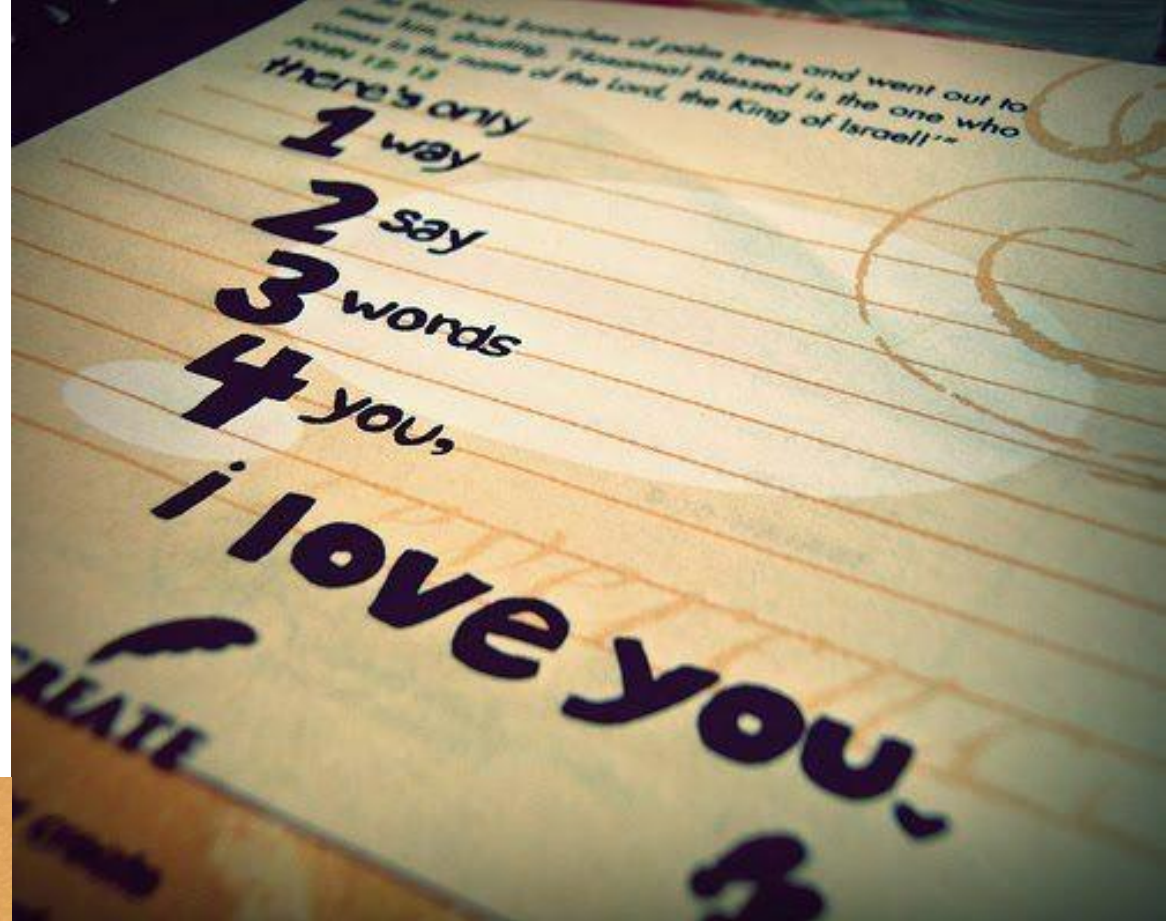 they took branches of palm trees and went out to
meet him, shouting, 'Hosanna! Blessed is the one who
comes in the name of the Lord, the King of Israel!'"
JOHN 12: 13
there's only
1 way
2 say
3 words
4 you,
i love you~
CREATE
create